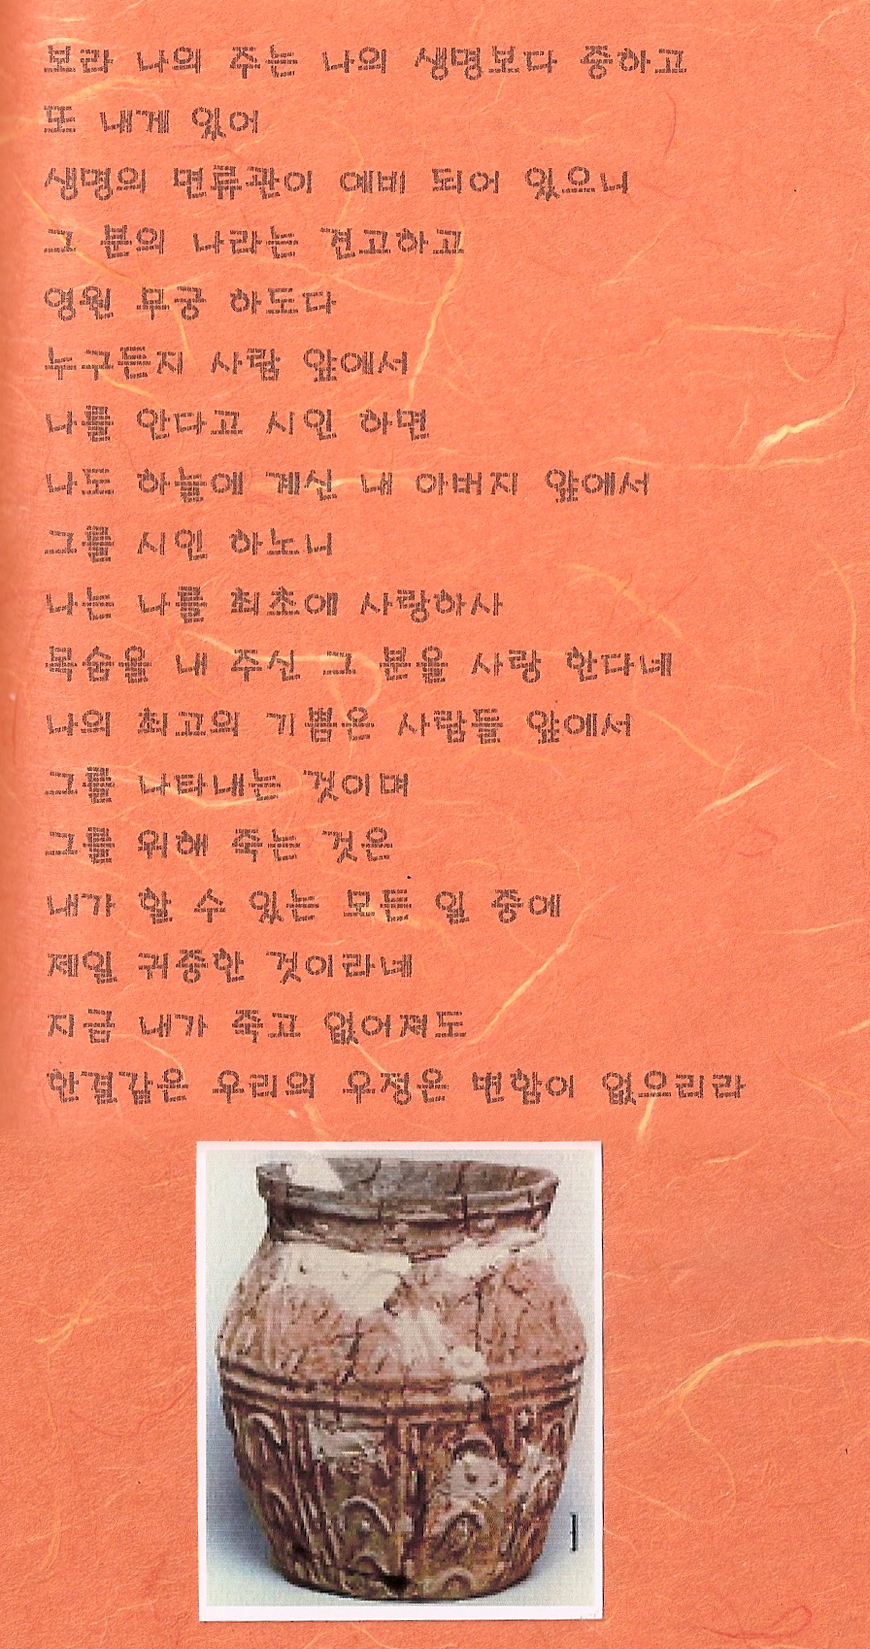 보라 나의 주는 나의 생명보다 중하고
또 내게 있어
생명의 면류관이 예비 되어 있으니
그 분의 나라는 견고하고
영원 무궁 하도다
누구든지 사람 앞에서
나를 안다고 시인 하면
나도 하늘에 계신 내 아버지 앞에서
그를 시인 하노니
나는 나를 최초에 사랑하사
목숨을 내 주신 그 분을 사랑 한다네
나의 최고의 기쁨은 사람들 앞에서
그를 나타내는 것이며
그를 위해 죽는 것은
내가 할 수 있는 모든 일 중에
제일 귀중한 것이라네
지금 내가 죽고 없어져도
한결같은 우리의 우정은 변함이 없으리라